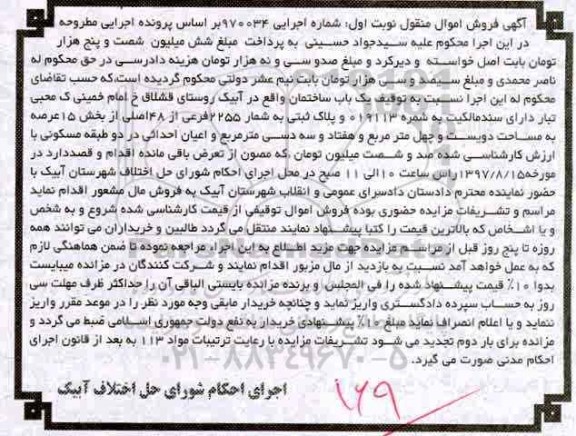 آگهی فروش اموال منقول نوبت اول: شماره اجرایی ۹۷۰۰۳۴بر اساس پرونده اجرایی مطروحه
در این اجرا محکوم علیه سیدجواد حسینی به پرداخت مبلغ شش میلیون شصت و پنج هزار
تومان بابت اصل خواسته و دیرکرد و مبلغ صدو سی و نه هزار تومان هزینه دادرسی در حق محکوم له
ناصر محمدی و مبلغ سیصد و سی هزار تومان بابت نیم عشر دولتی محکوم گردیده است،که حسب تقاضای
محکوم له این اجرا نسبت به توقیف یک باب ساختمان واقع در آبیک روستای قشلاق خ امام خمینی ک محبی
تبار دارای سندمالکیت به شمره ۰۱۹۱۱۳ و پلاک ثبتی به شمار ۲۲۵۵فرعی از ۴۸اصلی از بخش ۱۵عرصه
به مساحت دویست و چهل متر مربع و هفتاد و سه دسی مترمربع و اعیان احداثی در دو طبقه مسکونی با
ارزش کارشناسی شده صد و شصت میلیون تومان ،که مصون از تعرض باقی مانده اقدام و قصددارد در
مورخه۱۳۹۷/۸/۱۵راس ساعت ۱۰الی ۱۱ صبح در محل اجرای احکام شورای حل اختلاف شهرستان آبیک با
حضور نماینده محترم دادستان دادسرای عمومی و انقلاب شهرستان آبیک به فروش مال مشعور اقدام نماید
مراسم و تشریفات مزایده حضوری بوده فروش اموال توقیفی از قیمت کارشناسی شده شروع و به شخص
و یا اشخاص که بالاترین قیمت را کتبا پیشنهاد نمایند منتقل می گردد طالبین و خریداران می توانند همه
روزه تا پنج روز قبل از مراسم مزایده جهت مزید اطلاع به این اجراء مراجعه نموده تا ضمن هماهنگی لازم
که به عمل خواهد آمد نسبت به بازدید از مال مزبور اقدام نمایند و شرکت کنندگان در مزانده میبایست
بدوا ۱۰٪ قیمت پیشنهاد شده را فی المجلس و برنده مزانده بایستی الباقی آن را حداکثر ظرف مهلت سی
روز به حساب سپرده دادگستری واریز نماید و چنانچه خریدار مابقی وجه مورد نظر را در موعد مقرر واریز
ننماید و یا اعلام انصراف نماید مبلغ ۱۰٪ پیشنهادی خریدار به نفع دولت جمهوری اسلامی ضبط می گردد و
مزانده برای بار دوم تجدید می شود تشریفات مزایده با رعایت ترتیبات مواد ۱۱۳ به بعد از قانون اجرای
احکام مدنی صورت می گیرد.
۰۲۱-۸۸۳۴۹۶۷۰-۵
اجرای احکام شورای حل اختلاف آبیک
۱۶۹